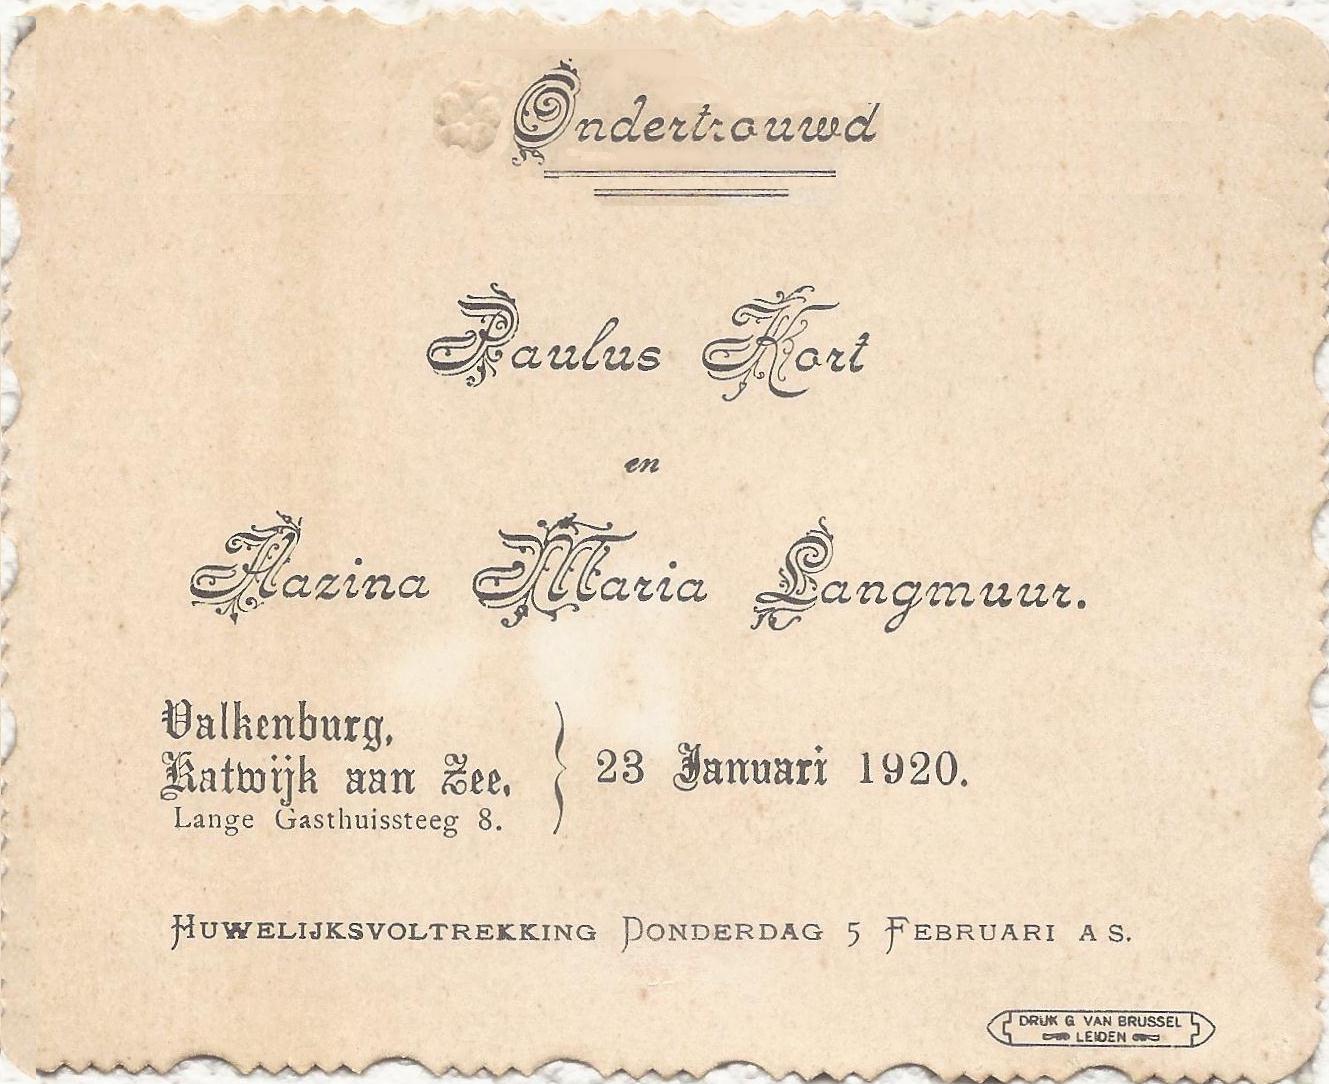 Ondertrouwd
Paulus Kort
en
Aazina Maria Langmuur.
Valkenburg,
Katwijk aan Zee,
Lange Gasthuissteeg 8.
23 Januari 1920.
Huwelijksvoltrekking Donderdag 5 Februari A S.
DRUK G. VAN BRUSSEL
LEIDEN